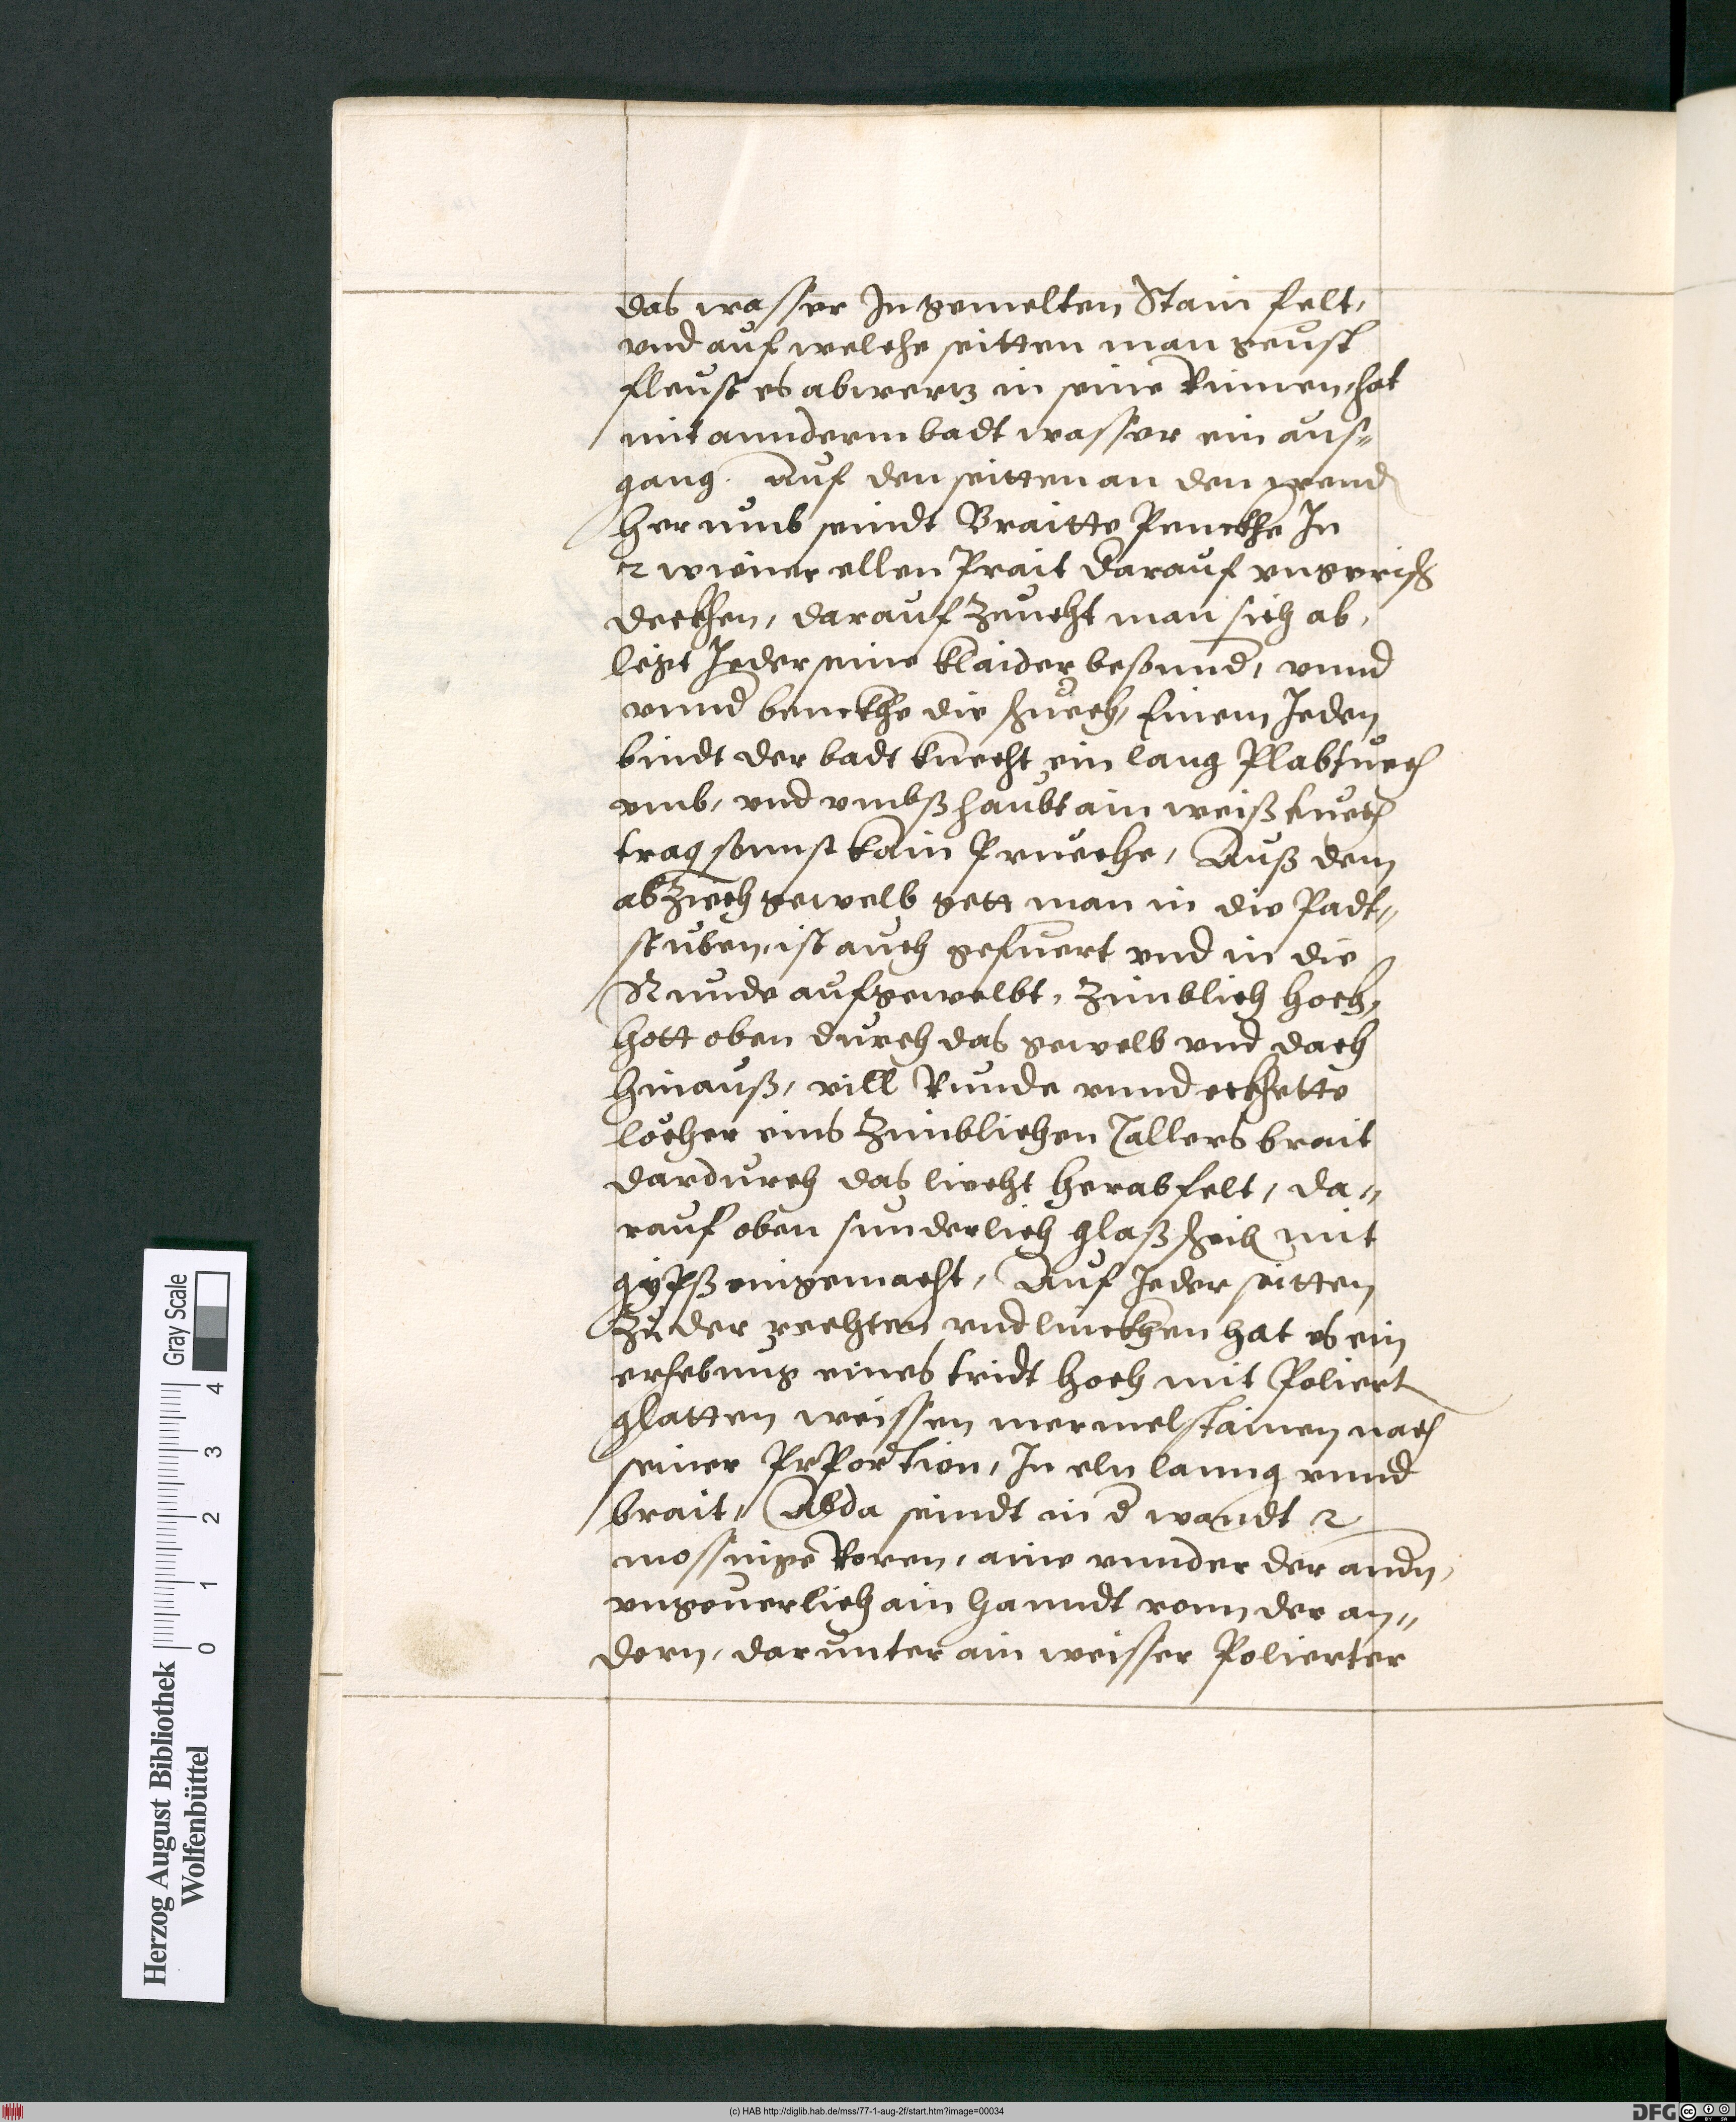 das wasser In gemelten Stain felt,
vnd auf welche seitten man geust
fleust es abwertz in seine Rinnen, hat
mit annderm badt wasser ein aus=
gang. Auf den seitten an den wend
herumb seindt Braitte Penckhe In
2 wiener ellen Prait darauf vngerisch
deckhen, darauf Zeucht man sich ab,
legt Jeder seine klaider besonnd, vnnd
vnnd benckhe die schuech, Einem Jeden
bindt der badt knecht ein lang Plab tuech
vmb, vnd vmbß haubt ain weiß tuech
trag sonnst kain Prueche, Auß dem
abziech gewelb gett man in die Padt=
stuben, ist auch gefiert vnd in die
Runde aufgewelbt, Zimblich hoch,
hott oben durch das gewelb vnd dach
hinauß, vill Runde vnnd eckhette
löcher eins Zimblichen Tallers brait
dardurch das liecht herabfelt, da=
rauf oben sunderlich glaß scheib mit
gypß eingemacht, Auf Jeder seitten
Zu der rechten vnd linckhen hat es ein
erhebung eines tridt hoch mit Poliert
glatten weissen mermelstainen nach
seiner PrPortion, In eln lanng vnnd
brait, Alda seindt in d wandt 2
mossinge Roren, aine vnnder der andn,
vngeuerlich ain hanndt vonn der an=
dern, darunter ain weisser Polierter
Herzog August Bibliothek
Wolfenbüttel
Gray Scale
0 1 2 3 4
(c) HAB http://diglib.hab.de/mss/77-1-aug-2f/start.htm?image=00034
DFG